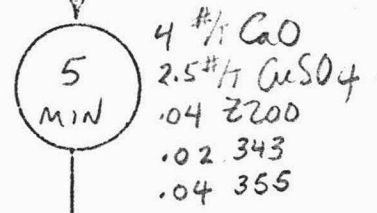 5
MIN
4 #/T CaO
2.5 #/T CuSO4
.04 Z200
.02 343
.04 355